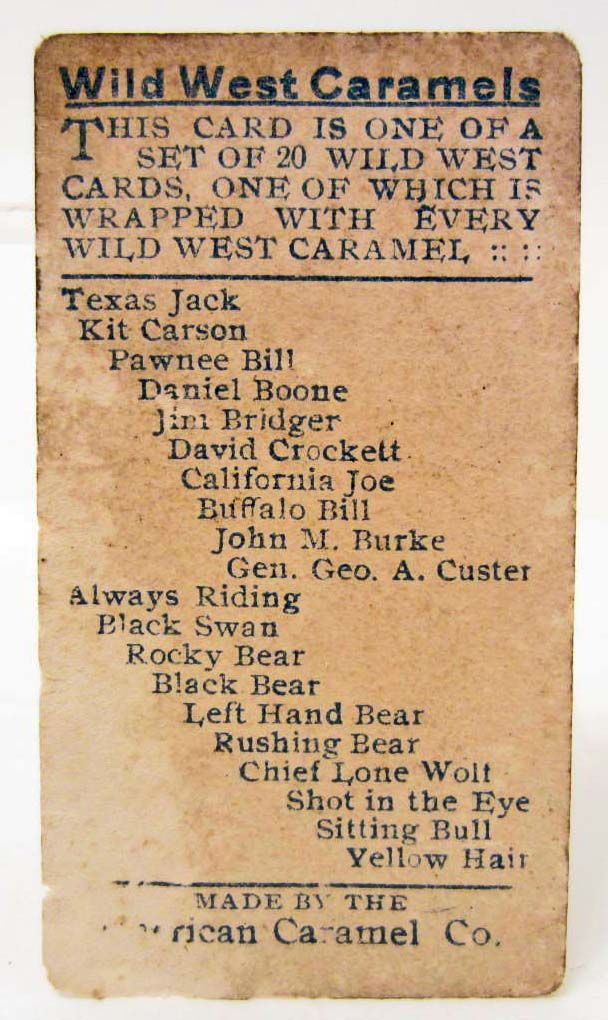 Wild West Caramels
THIS CARD IS ONE OF A
SET OF 20 WILD WEST
CARDS, ONE OF WHICH IS
WRAPPED WITH EVERY
WILD WEST CARAMEL :: ::
Texas Jack
Kit Carson
Pawnee Bill
Daniel Boone
Jim Bridger
David Crockett
California Joe
Buffalo Bill
John M. Burke
Gen. Geo. A. Custer
Always Riding
Black Swan
Rocky Bear
Black Bear
Left Hand Bear
Rushing Bear
Chief Lone Wolf
Shot in the Eye
Sitting Bull
Yellow Hair
MADE BY THE
American Caramel Co.